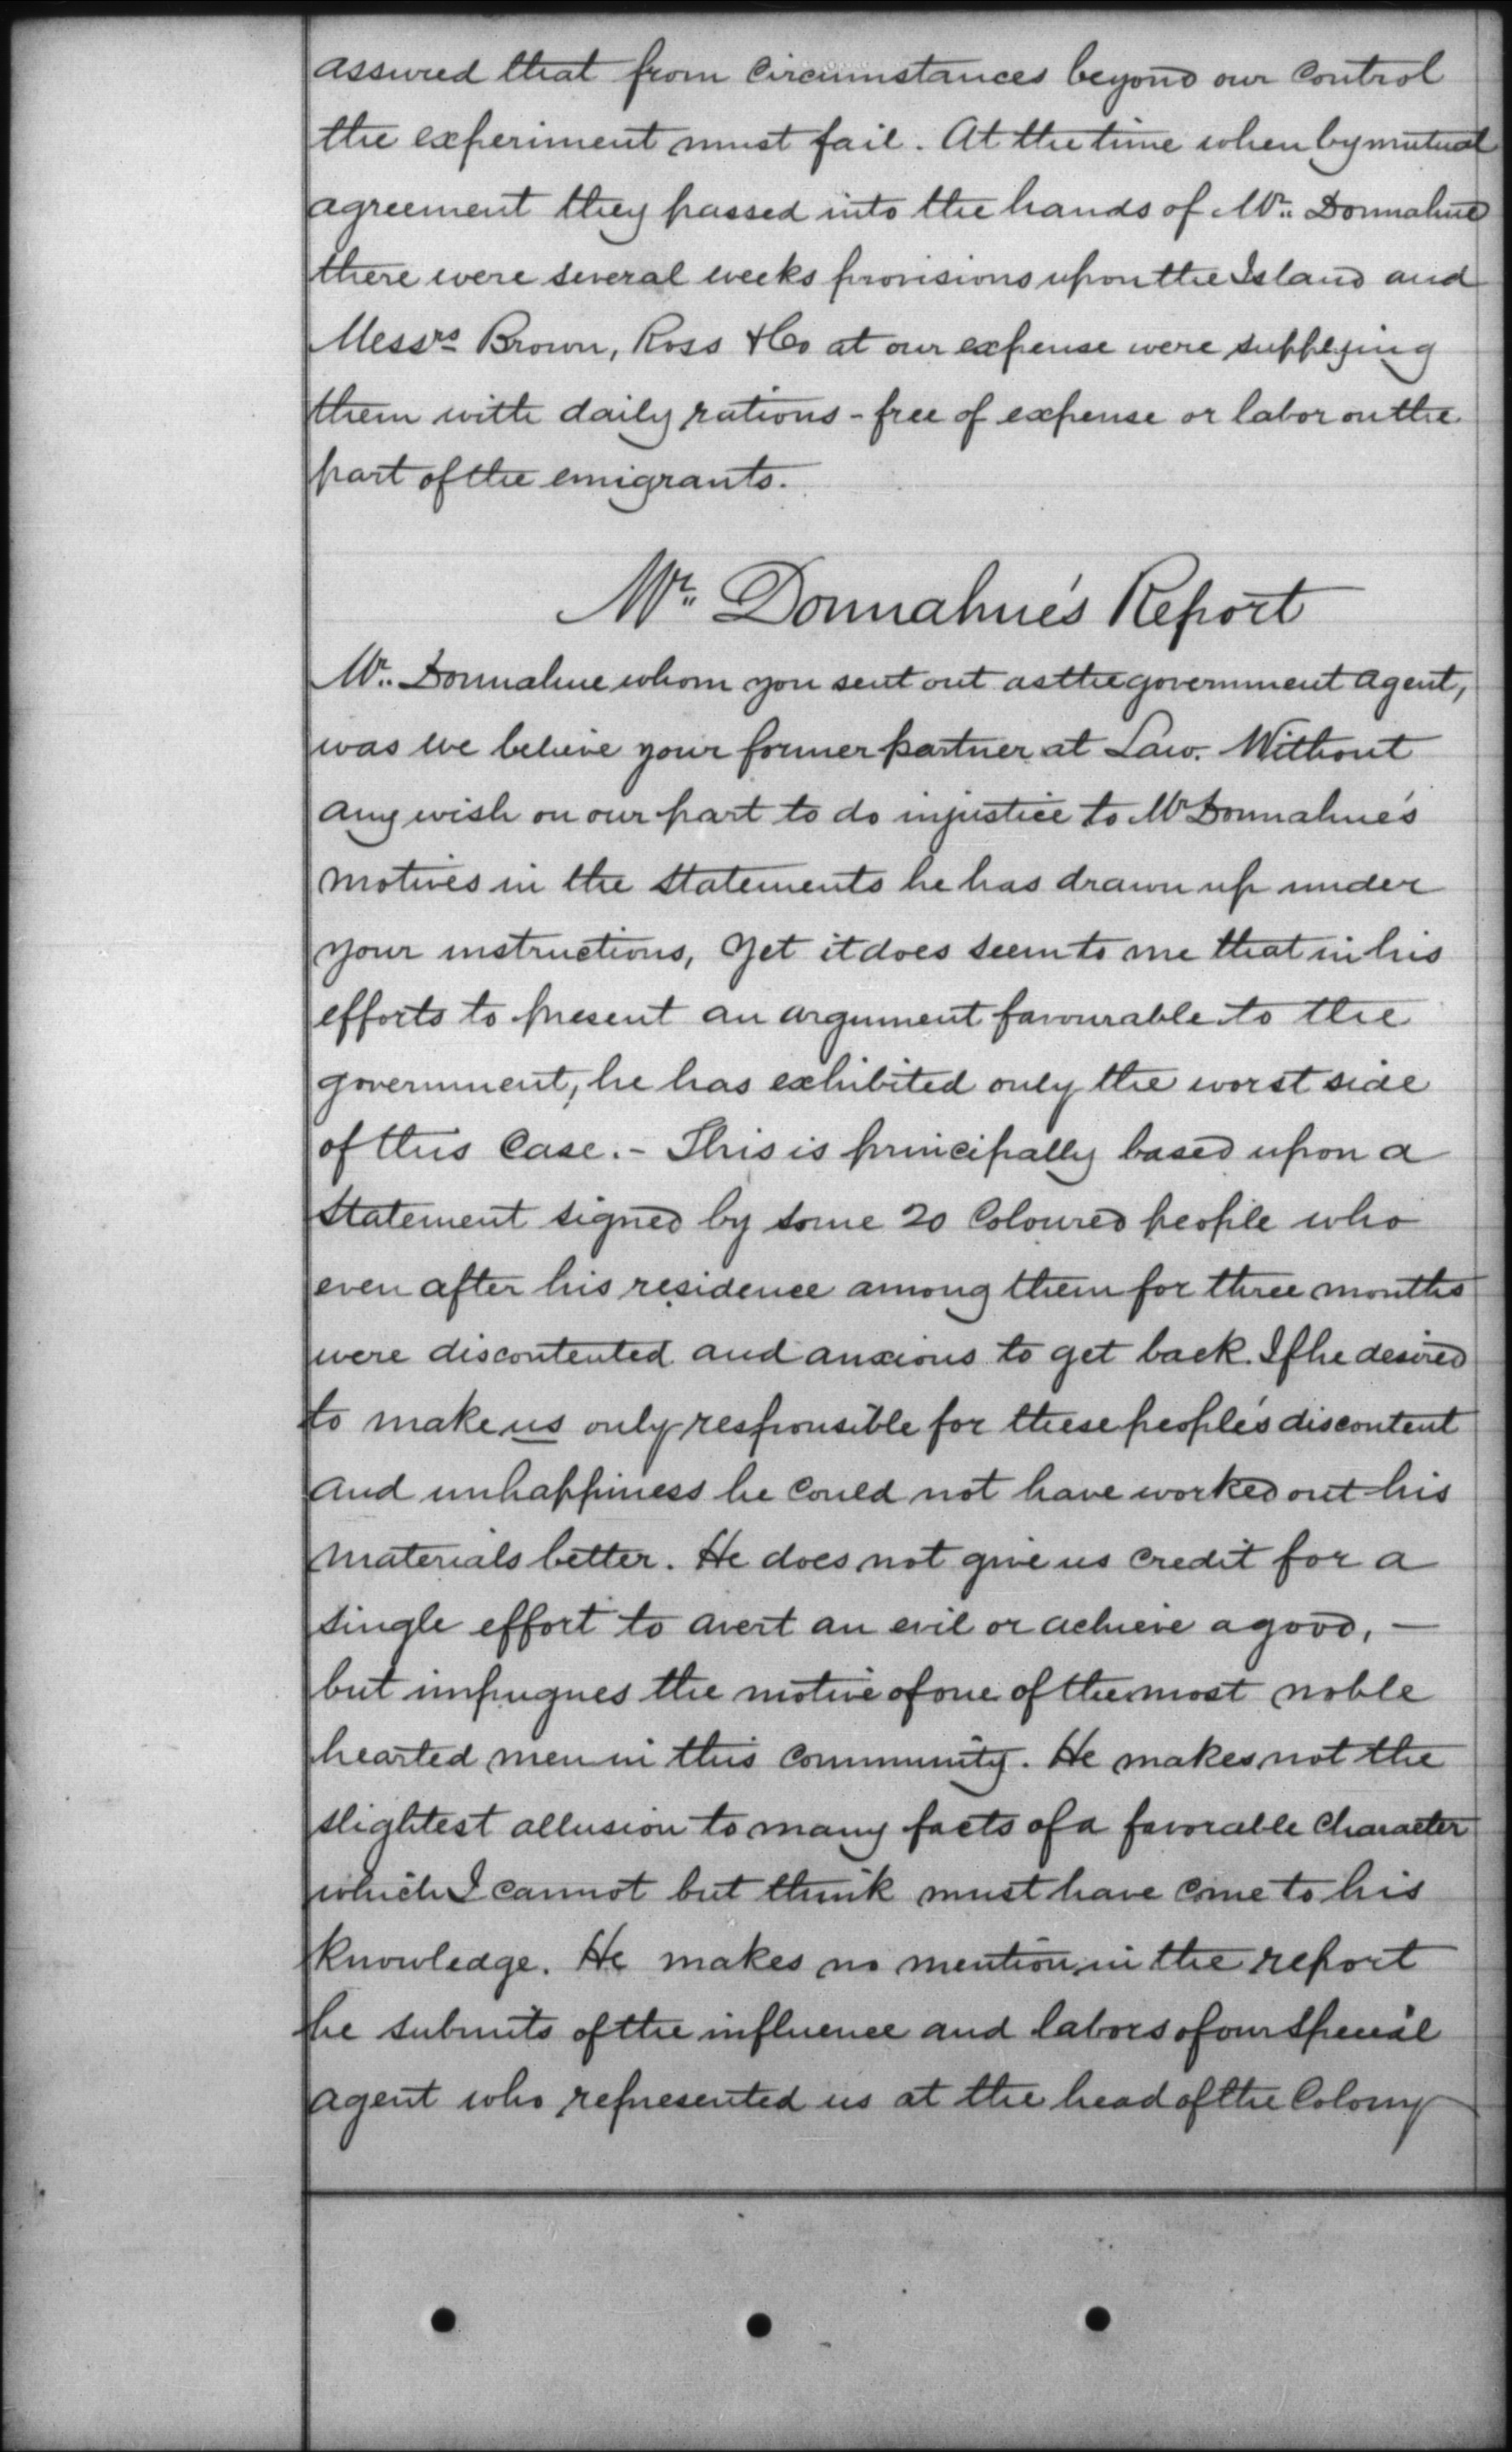 assured that from Circumstances beyond our Control
the experiment must fail. At the time when by mutual
agreement they passed into the hands of Mr. Donnahue
there were several weeks provisions upon the Island and
Messrs Brown, Ross & Co at our expense were supplying
them with daily rations - free of expense or labor on the
part of the emigrants.
Mr. Donnahue's Report
Mr. Donnahue whom you sent out as the government agent,
was we believe your former partner at Law. Without
any wish on our part to do injustice to Mr Donnahue's
motives in the statements he has drawn up under
your instructions, Yet it does seem to me that in his
efforts to present an argument favourable to the
government, he has exhibited only the worst side
of this Case. - This is principally based upon a
statement signed by some 20 Coloured people who
even after his residence among them for three months
were discontented and anxious to get back. If he desired
to make us only responsible for these people's discontent
and unhappiness he could not have worked out his
materials better. He does not give us credit for a
single effort to avert an evil or achieve a good, —
but impugnes the motive of one of the most noble
hearted men in this Community. He makes not the
slightest allusion to many facts of a favorable Character
which I cannot but think must have come to his
knowledge. He makes no mention in the report
he submits of the influence and labors of our special
agent who represented us at the head of the Colony